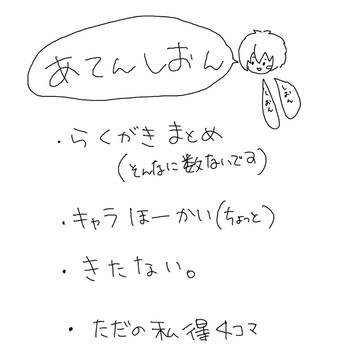 あてんしおん
しおん
しおん
・らくがきまとめ
(そんなに数ないです)
・キャラほーかい(ちょっと)
・きたない。
・ただの私得4コマ